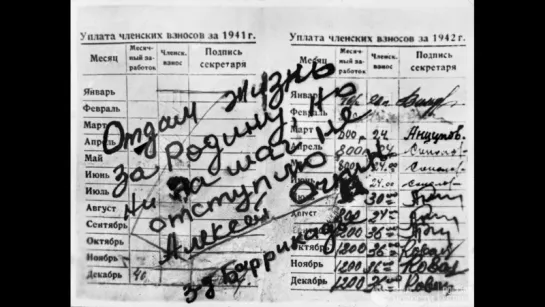 Уплата членских взносов за 1941 г.
Месяц
Месячный заработок
Членск. взнос
Подпись секретаря
Январь
Февраль
Март
Апрель
Май
Июнь
Июль
Август
Сентябрь
Октябрь
Ноябрь
Декабрь
Уплата членских взносов за 1942 г.
Месяц
Месячный заработок
Членск. взнос
Подпись секретаря
Январь
Февраль
Март 24
Апрель 800 24
Май 24
Июнь 24.00
Июль
Август 24
Сентябрь 1200 36
Октябрь 1200 36
Ноябрь 1200 36
Декабрь 1200
Отдам жизнь
за Родину, но
ни на шаг не
отступлю
Алексей Очкин
з-д Баррикады